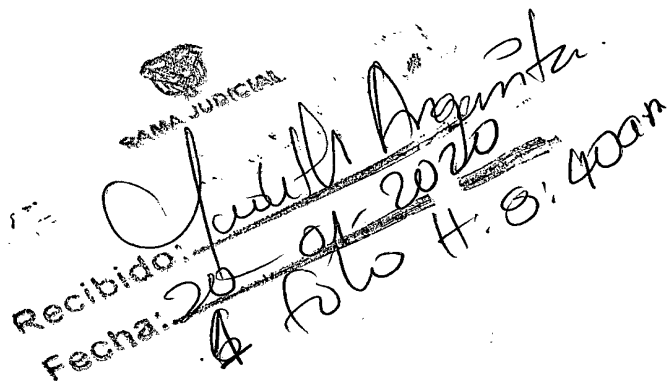 RAMA JUDICIAL
Recibido: Judith Argenita
Fecha: 20-01-2020
folio H. 8:40am